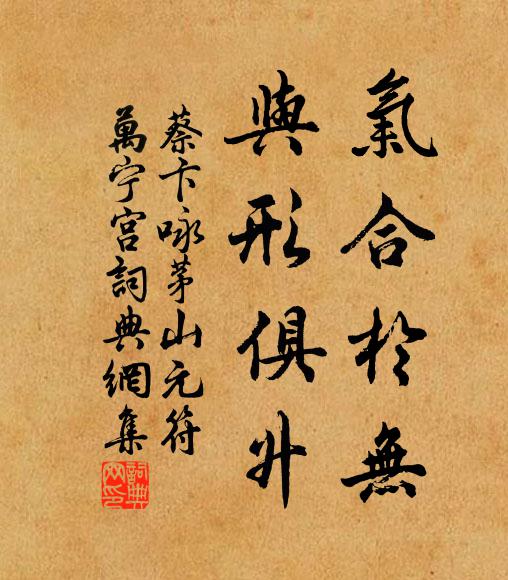 氣合於無
與形俱升
蔡卞咏茅山元符
萬宁宮詞典網集
詞典网印